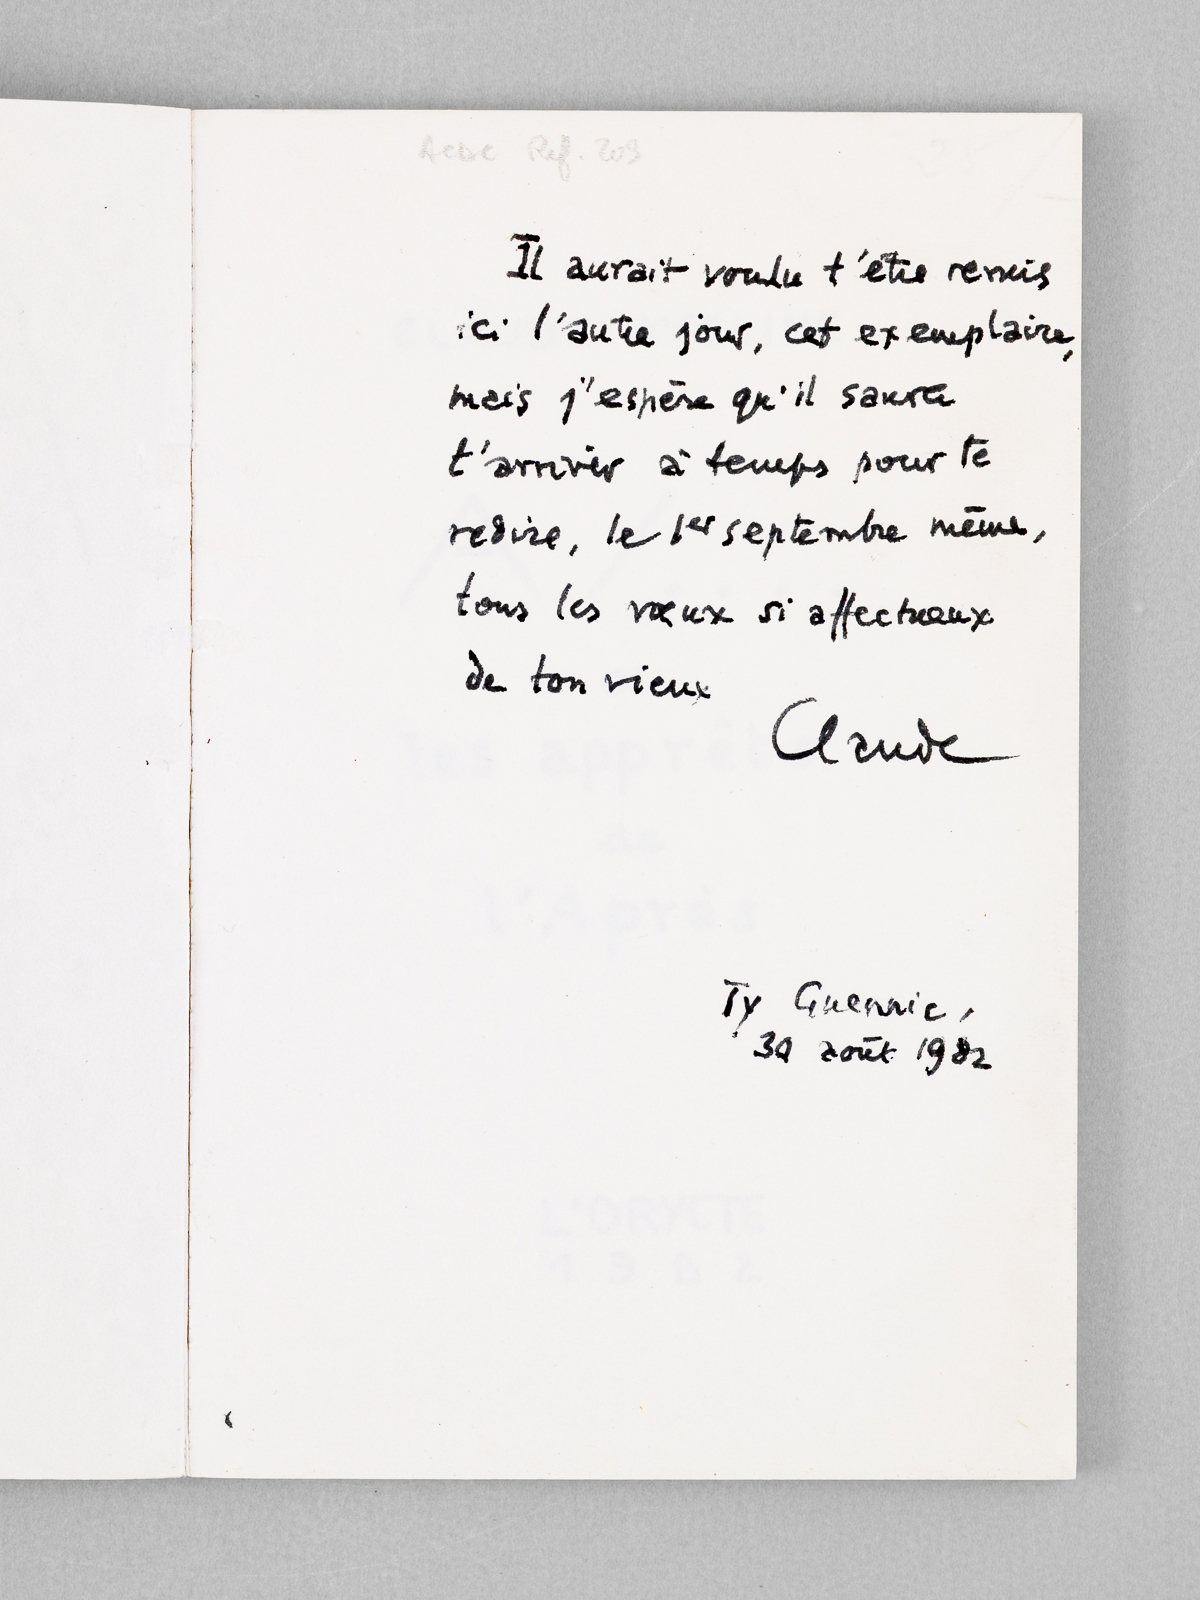 Ref. 203
Il aurait voulu t'être remis
ici l'autre jour, cet exemplaire,
mais j'espère qu'il saura
t'arriver à temps pour te
redire, le 1er septembre même,
tous les vœux si affectueux
de ton vieux
Claude
les apprêts
de
l'Après
Ty Guennic,
30 août 1982
L'ORYCTE
1982